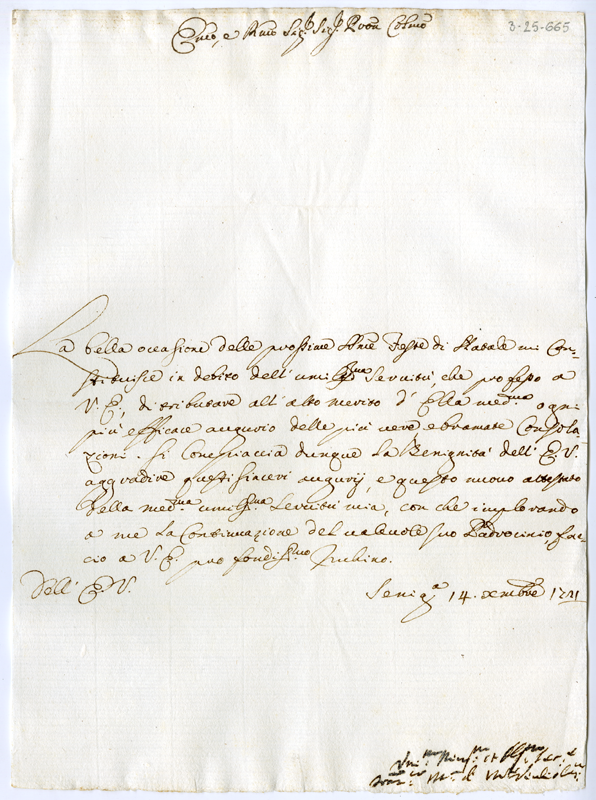 3-25-665
Emo, e Rmo Sig.r Sig.r Pron Colmo
La bella occasione delle prossime Sme Feste di Natale mi con=
stituisce in debito dell' umilma Servitù, che professo a
V. E., di tributare all' alto merito d' Ella medma ogni
più efficace augurio delle più vere e bramate consola
zioni. Si compiaccia dunque la Benignità dell' E. V.
aggradire questi sinceri augurij, e questo nuovo attestato
della medma umilissma Servitù mia, con che implorando
a me la Confirmazione del valevole suo Padrocinio, fac=
cio a V. E. profondissmo Inchino.
Dell' E. V.
Senigа 14. Xembre 1721